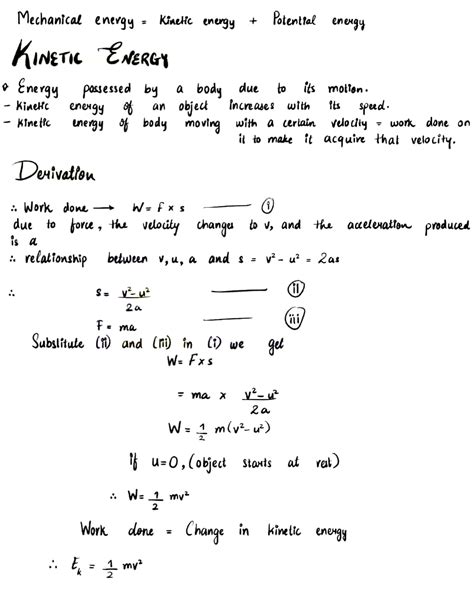 Mechanical energy = Kinetic energy + Potential energy
KINETIC ENERGY
Energy possessed by a body due to its motion.
- Kinetic energy of an object increases with its speed.
- Kinetic energy of body moving with a certain velocity = work done on
it to make it acquire that velocity.
Derivation
∴ Work done → W = F × s —— (i)
due to force, the velocity changes to v, and the acceleration produced
is a
∴ relationship between v, u, a and s = v² - u² = 2as
∴ s = (v² - u²)/2a —— (ii)
F = ma —— (iii)
Substitute (ii) and (iii) in (i) we get
W = F × s
= ma × (v² - u²)/2a
W = 1/2 m(v² - u²)
if u = 0, (object starts at rest)
∴ W = 1/2 mv²
Work done = Change in kinetic energy
∴ Eₖ = 1/2 mv²